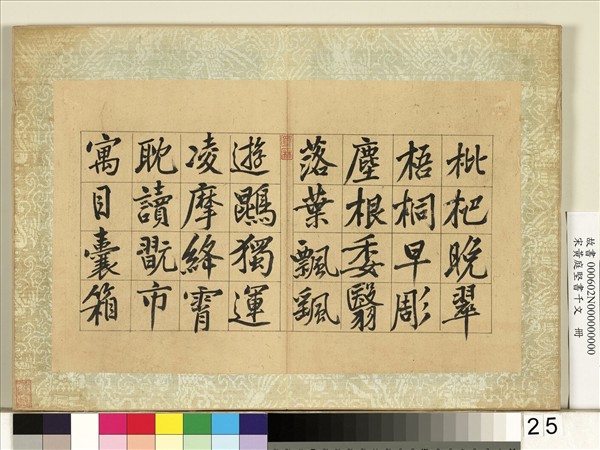 枇杷晚翠
梧桐早彫
塵根委翳
落葉飄颻
遊鵾獨運
凌摩絳霄
耽讀翫市
寓目囊箱
故書 000602N000000000
宋黃庭堅書千文 冊
25